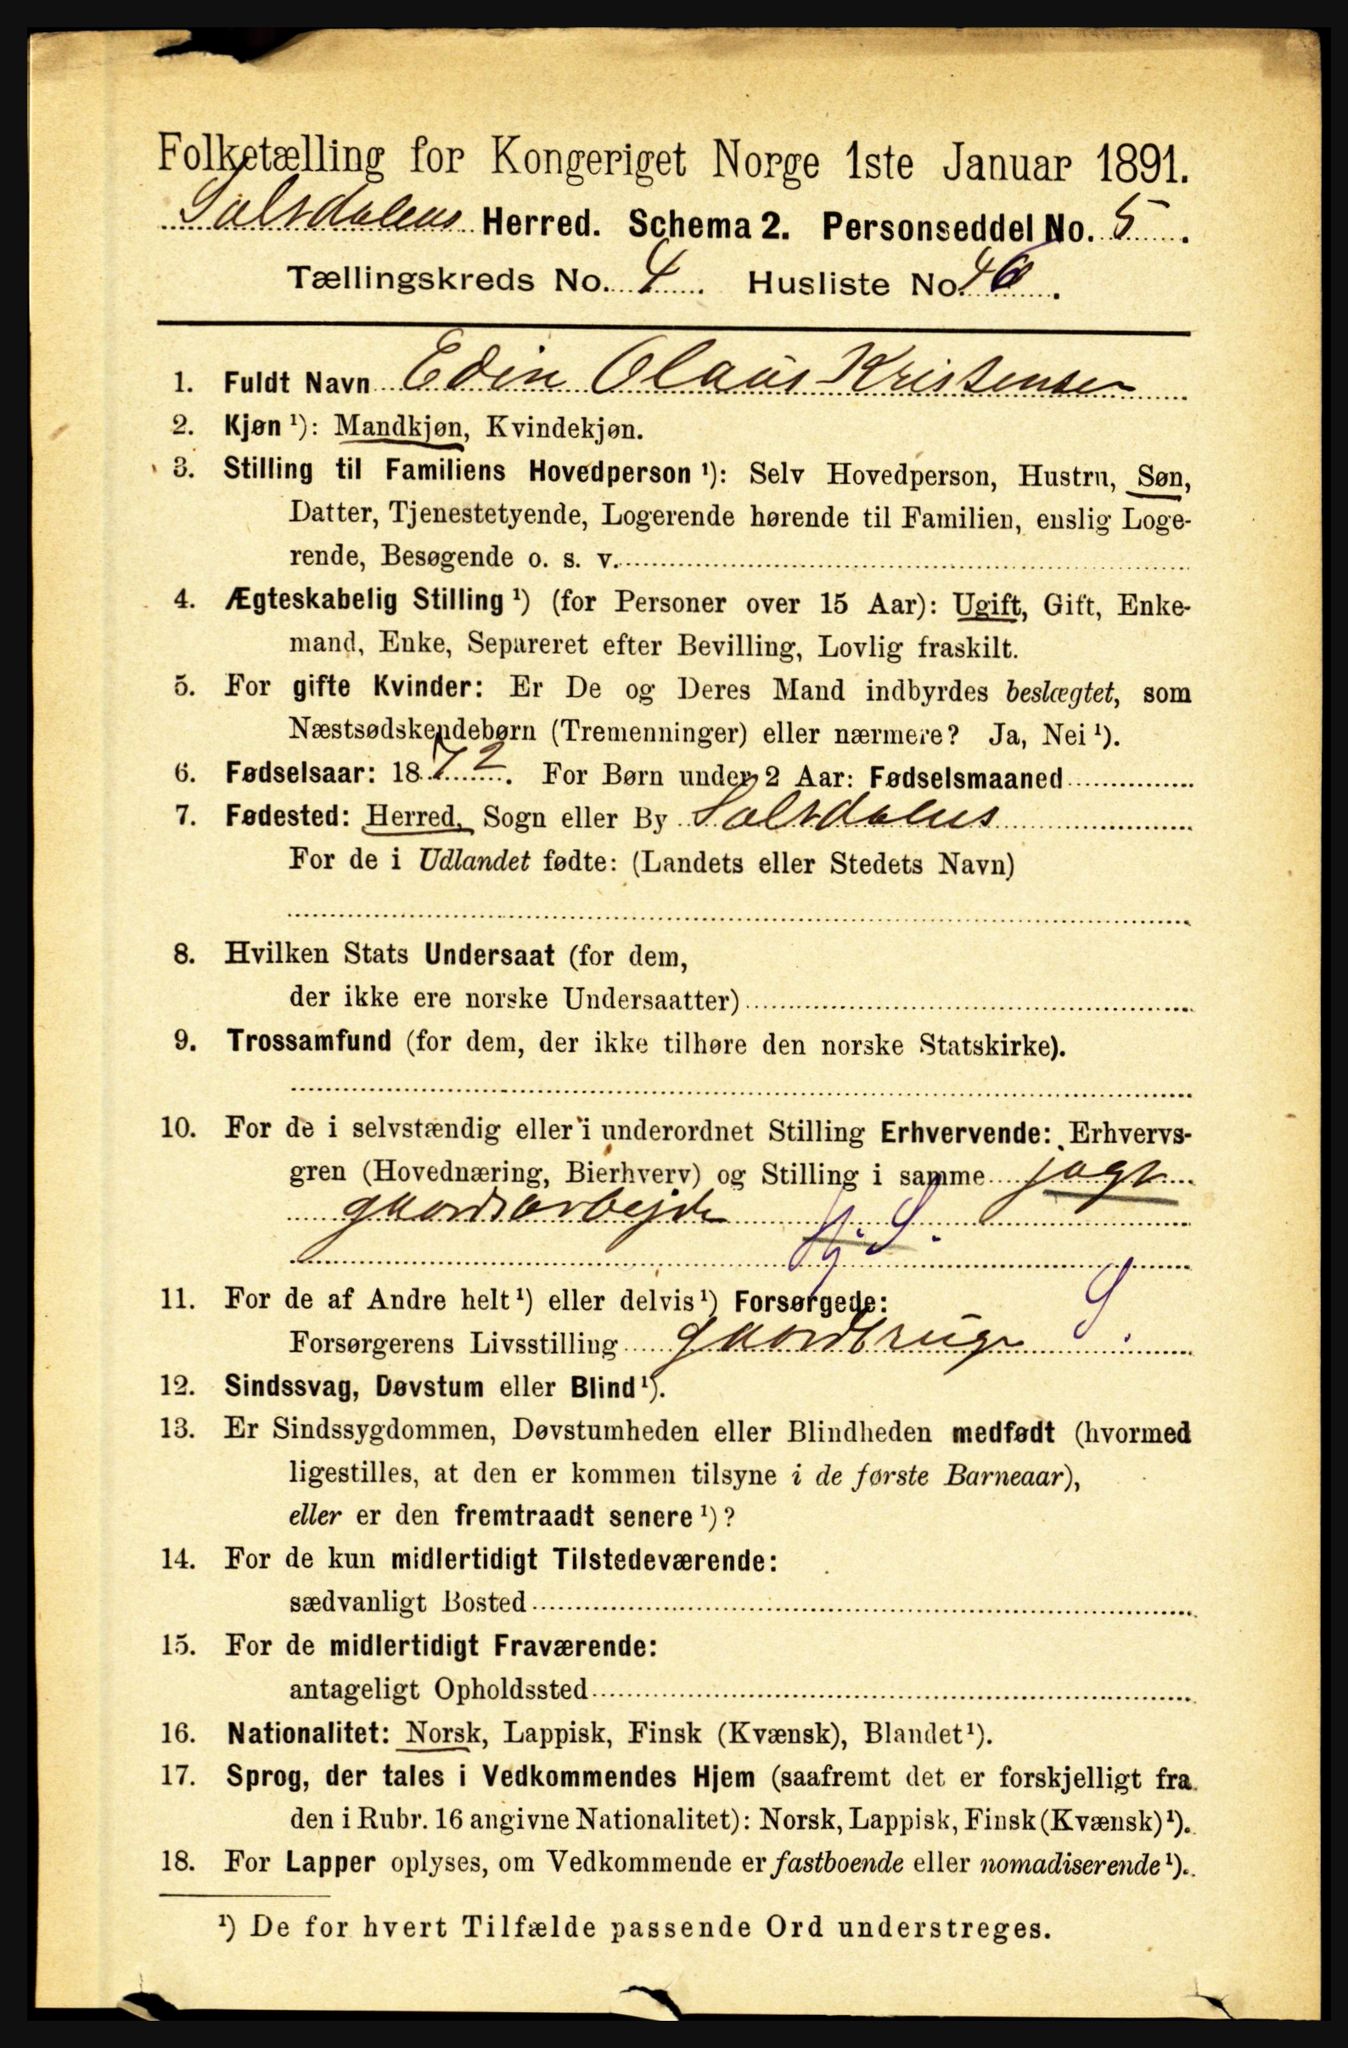 Folketælling for Kongeriget Norge 1ste Januar 1891.
Saltdalens Herred. Schema 2. Personseddel No. 5.
Tællingskreds No. 4. Husliste No. 46.
1. Fuldt Navn Edin Olaus Kristensen
2. Kjøn ¹): Mandkjøn, Kvindekjøn.
3. Stilling til Familiens Hovedperson ¹): Selv Hovedperson, Hustru, Søn,
Datter, Tjenestetyende, Logerende hørende til Familien, enslig Loge-
rende, Besøgende o. s. v.
4. Ægteskabelig Stilling ¹) (for Personer over 15 Aar): Ugift, Gift, Enke-
mand, Enke, Separeret efter Bevilling, Lovlig fraskilt.
5. For gifte Kvinder: Er De og Deres Mand indbyrdes beslægtet, som
Næstsødskendebørn (Tremenninger) eller nærmere? Ja, Nei ¹).
6. Fødselsaar: 1872. For Børn under 2 Aar: Fødselsmaaned
7. Fødested: Herred, Sogn eller By Saltdalens
For de i Udlandet fødte: (Landets eller Stedets Navn)
8. Hvilken Stats Undersaat (for dem,
der ikke ere norske Undersaatter)
9. Trossamfund (for dem, der ikke tilhøre den norske Statskirke).
10. For de i selvstændig eller i underordnet Stilling Erhvervende: Erhvervs-
gren (Hovednæring, Bierhverv) og Stilling i samme jagt
gaardsarbejde
S.
11. For de af Andre helt ¹) eller delvis ¹) Forsørgede: S.
Forsørgerens Livsstilling gaardbruger
12. Sindssvag, Døvstum eller Blind ¹).
13. Er Sindssygdommen, Døvstumheden eller Blindheden medfødt (hvormed
ligestilles, at den er kommen tilsyne i de første Barneaar),
eller er den fremtraadt senere ¹)?
14. For de kun midlertidigt Tilstedeværende:
sædvanligt Bosted
15. For de midlertidigt Fraværende:
antageligt Opholdssted
16. Nationalitet: Norsk, Lappisk, Finsk (Kvænsk), Blandet ¹).
17. Sprog, der tales i Vedkommendes Hjem (saafremt det er forskjelligt fra
den i Rubr. 16 angivne Nationalitet): Norsk, Lappisk, Finsk (Kvænsk) ¹).
18. For Lapper oplyses, om Vedkommende er fastboende eller nomadiserende ¹).
¹) De for hvert Tilfælde passende Ord understreges.